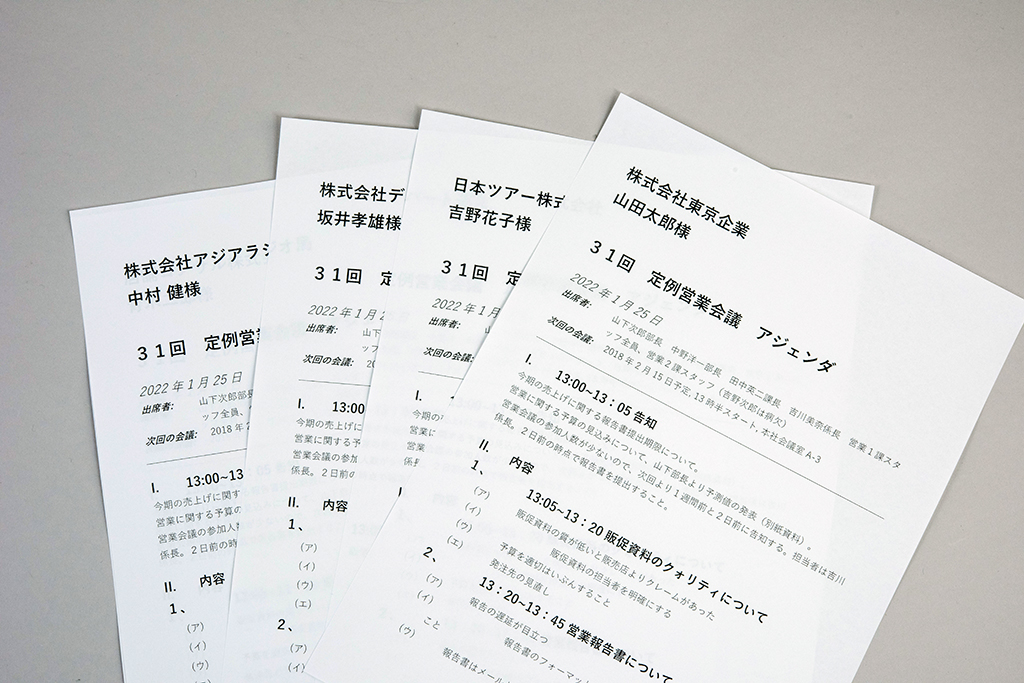 株式会社アジアラジ
中村 健様
31回 定例営業
2022年1月25日
出席者: 山下次郎部長
ッフ全員、
次回の会議: 2018年2
I. 13:00~13
今期の売上げに関す
営業に関する予算の
営業会議の参加人数
係長。2日前の時
II. 内容
1、
(ア)
(イ)
(ウ)
株式会社デ
坂井孝雄様
31回 定
2022年1月2
出席者: 山下
ッフ
次回の会議: 20
I. 13:00
今期の売上げに
営業に関する予
営業会議の参加
係長。2日前
II. 内容
1、
(ア)
(イ)
(ウ)
(エ)
2、
(ア)
(イ)
日本ツアー株式
吉野花子様
31回 定
2022年1月
出席者: 山
ッ
次回の会議: 2
I.
今期の
営業に
営業
係長
株式会社東京企業
山田太郎様
31回 定例営業会議 アジェンダ
2022年1月25日
出席者: 山下次郎部長 中野洋一部長 田中英二課長 吉川美奈係長 営業1課スタ
ッフ全員、営業2課スタッフ(吉野次郎は病欠)
次回の会議: 2018年2月15日予定, 13時半スタート, 本社会議室A-3
I. 13:00~13:05 告知
今期の売上げに関する報告書提出期限について。
営業に関する予算の見込みについて、山下部長より予測値の発表(別紙資料)。
営業会議の参加人数が少ないので、次回より1週間前と2日前に告知する。担当者は吉川
係長。2日前の時点で報告書を提出すること。
II. 内容
1、 13:05~13:20 販促資料のクオリティについて
(ア) 販促資料の質が低いと販売店よりクレームがあった
(イ) 販促資料の担当者を明確にする
(ウ) 予算を適切はいぶんすること
(エ) 発注先の見直し
2、 13:20~13:45 営業報告書について
(ア) 報告の遅延が目立つ
(イ) 報告書のフォーマット
こと
(ウ) 報告書はメール